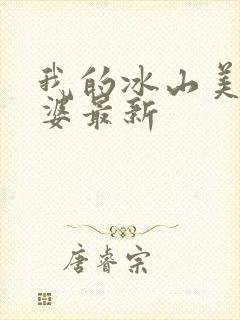 我的冰山美
婆最新
唐睿宗